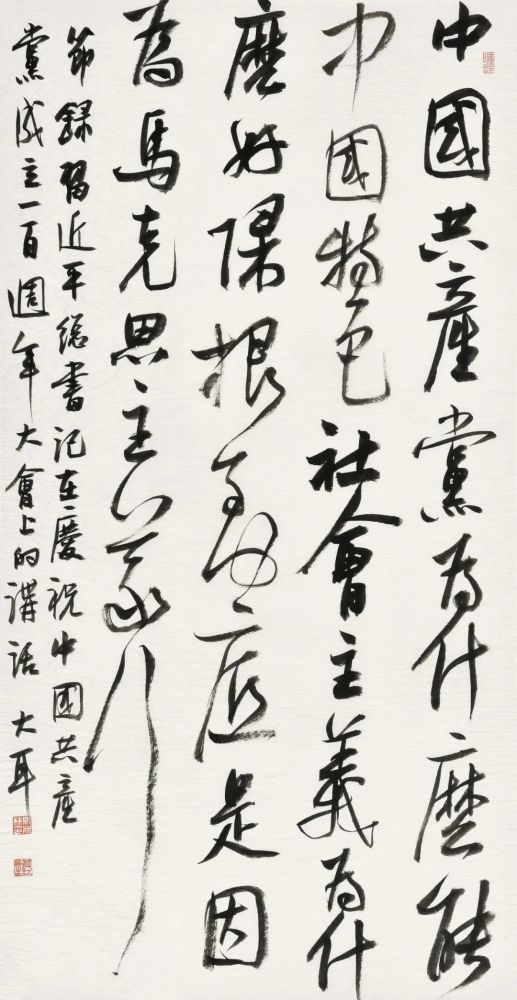 中國共產黨為什麼能
中國特色社會主義為什
麼好歸根到底是因
為馬克思主義行
節錄習近平總書記在慶祝中國共產
黨成立一百週年大會上的講話 大耳